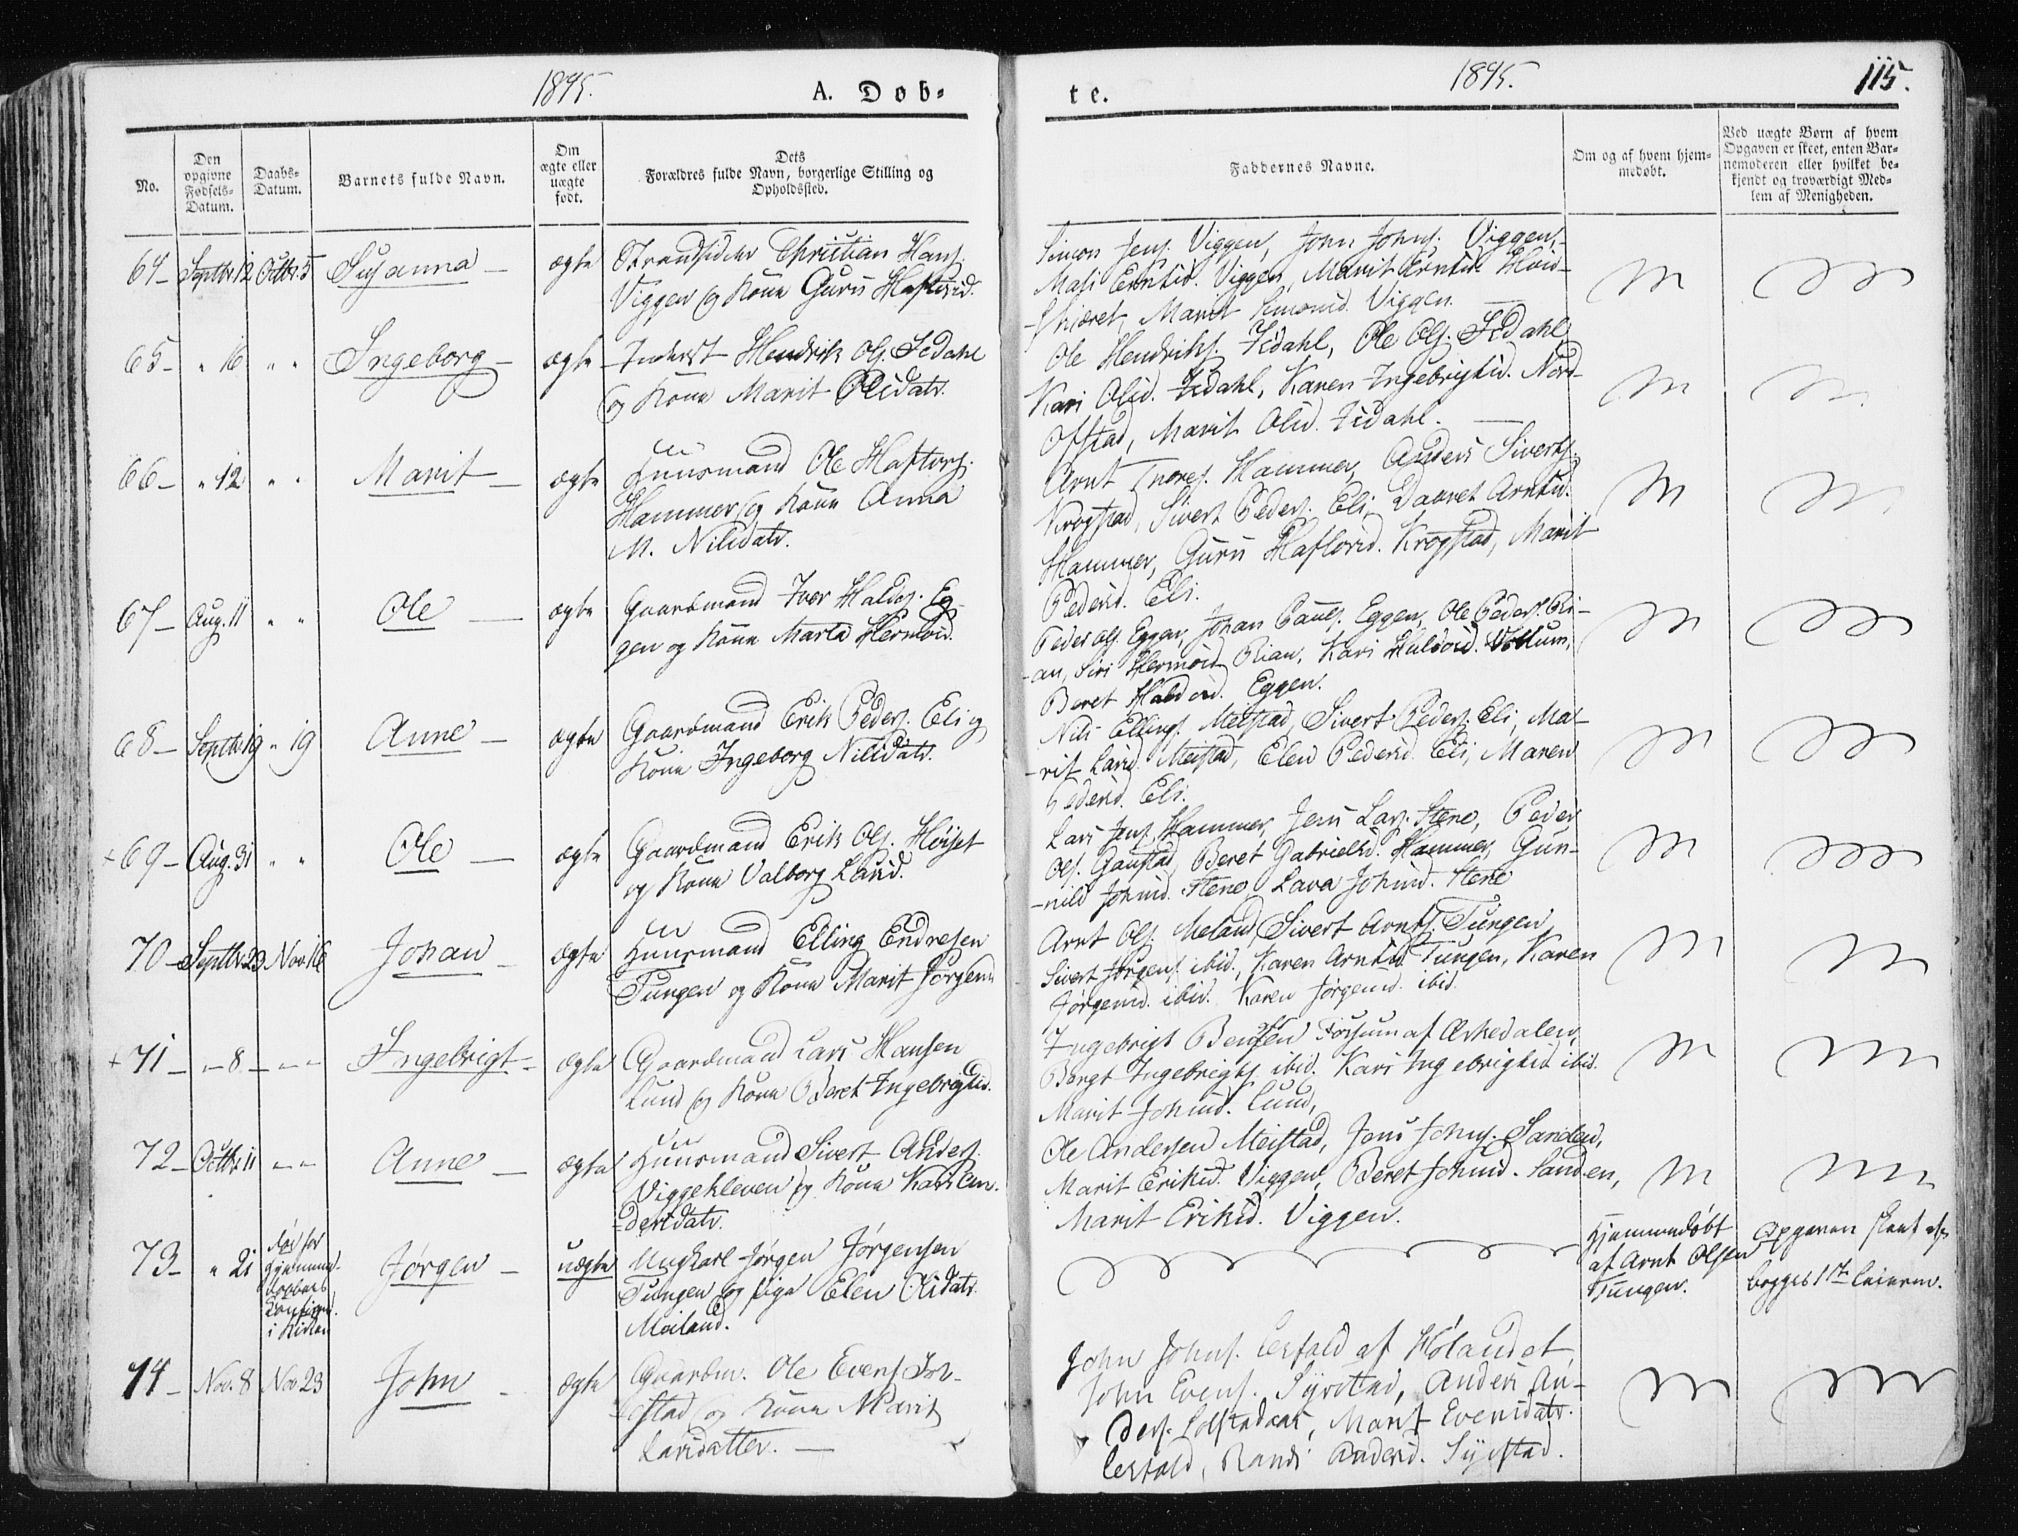 1845.
A. Døb-
No.
Den
opgivne
Fødsels-
Datum.
Daabs-
Datum.
Barnets fulde Navn.
Om
ægte eller
uægte
født.
Dets
Forældres fulde Navn, borgerlige Stilling og
Opholdssted.
64 Septbr. 12 Octbr. 5 Susanna ægte Strandsidder Christian Hans.
Viggen og Kone Guru Haftorsd.
65 " 16 " " Ingeborg ægte Inderst Hendrik Ols. Isdahl
og Kone Marit Olsdatr.
66 " 12 " " Marit ægte Huusmand Ole Haftors.
Hammer og Kone Anna
M. Nilsdatr.
67 Aug. 11 " " Ole ægte Gaardmand Iver Haldos. Eg-
gen og Kone Marta Hermoed.
68 Septbr. 19 " 19 Anne ægte Gaardmand Erik Peders. Eli og
Kone Ingeborg Nilsdatr.
+ 69 Aug. 31 " " Ole ægte Gaardmand Erik Ols. Høiset
og Kone Valborg Larsd.
70 Septbr. 23 Nov. 16 Johan ægte Huusmand Elling Endresen
Tungen og Kone Marit Jørgensd.
+ 71 " 8 " " Ingebrigt ægte Gaardmand Lars Hansen
Lund og Kone Beret Ingebrigtsd.
72 Octbr. 11 " " Anne ægte Huusmand Sivert Anders.
Viggekleven og Kone Kari An-
dersdatr.
73 " 21 Jørgen uægte Ungkarl Jørgen Jørgensen
Tungen og Pige Elen Olsdatr.
Moeland.
74 Nov. 8 Nov. 23 John ægte Gaardm. Ole Evens. Sol-
stad og Kone Marit
Larsdatter.
te.
1845.
115.
Faddernes Navne.
Om og af hvem hjem-
medøbt.
Ved uægte Børn af hvem
Opgaven er skeet, enten Bar-
nemoderen eller hvilket be-
kjendt og troværdigt Med-
lem af Menigheden.
Simon Jens. Viggen, John Johns. Viggen,
Mali Erntsd. Viggen, Marit Arntsd.
Marit Simonsd. Viggen.
Ole Hendriks. Isdahl, Ole Ols. Isdahl,
Kari Olsd. Isdahl, Karen Ingebrigtsd. Nord-
Ofstad, Marit Olsd. Isdahl.
Arnt Thores. Hammer, Anders Siverts.
Krogstad, Sivert Peders. Eli, Daaret Arntsd.
Hammer, Guru Haftorsd. Krogstad, Marit
Pedersd. Eli.
Peder Ols. Eggen, Johan Pauls. Eggen, Ole Peders. Ri-
an, Siri Hermoed. Rian, Kari Halvord. Vollum,
Beret Haldosd. Eggen.
Nils Ellings. Meistad, Sivert Peders. Eli, Ma-
rit Larsd. Meistad, Elen Pedersd. Eli, Maren
Pedersd. Eli.
Lars Jens. Hammer, Jens Lars. Stene, Peder
Ols. Gaustad, Beret Gabrielsd. Hammer, Gun-
nild Johnsd. Stene, Lava Johnsd. Stene
Arnt Ols. Meland, Sivert Arnts. Tungen,
Sivert Jørgens. ibid., Karen Arntsd. Tungen, Karen
Jørgensd. ibid. Karen Jørgensd. ibid.
Ingebrigt Bentsen Forsum af Orkedalen,
Bengt Ingebrigts. ibid. Kari Ingebrigtsd. ibid.
Marit Johnsd. Lund,
Ole Andersen Meistad, Jens Johns. Sanden,
Marit Eriksd. Viggen, Beret Johnsd. Sanden,
Marit Eriksd. Viggen.
Hjemmedøbt
af Arnt Olsen
Tungen.
Opgaven skeet af
begges 1ste Leierm.
John Johns. af Hølandet
John Evens. Syrstad, Anders An-
ders. Solstadaas, Marit Evensdatr.
Randi Andersd. Syrstad.